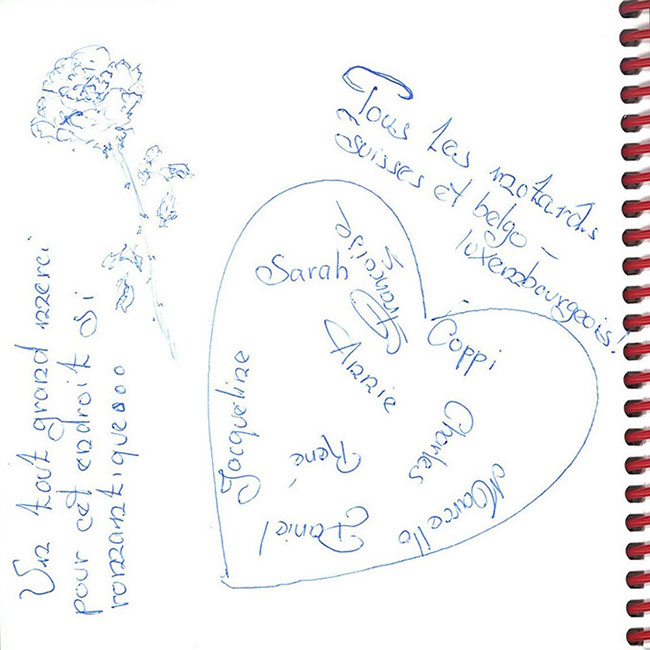 Tous les motards
suisses et belgo-
luxembourgeois!
Sarah
Françoise
Annie
Coppi
Jacqueline
René
Charles
Daniel
Marcello
Un tout grand merci
pour cet endroit si
romantique...